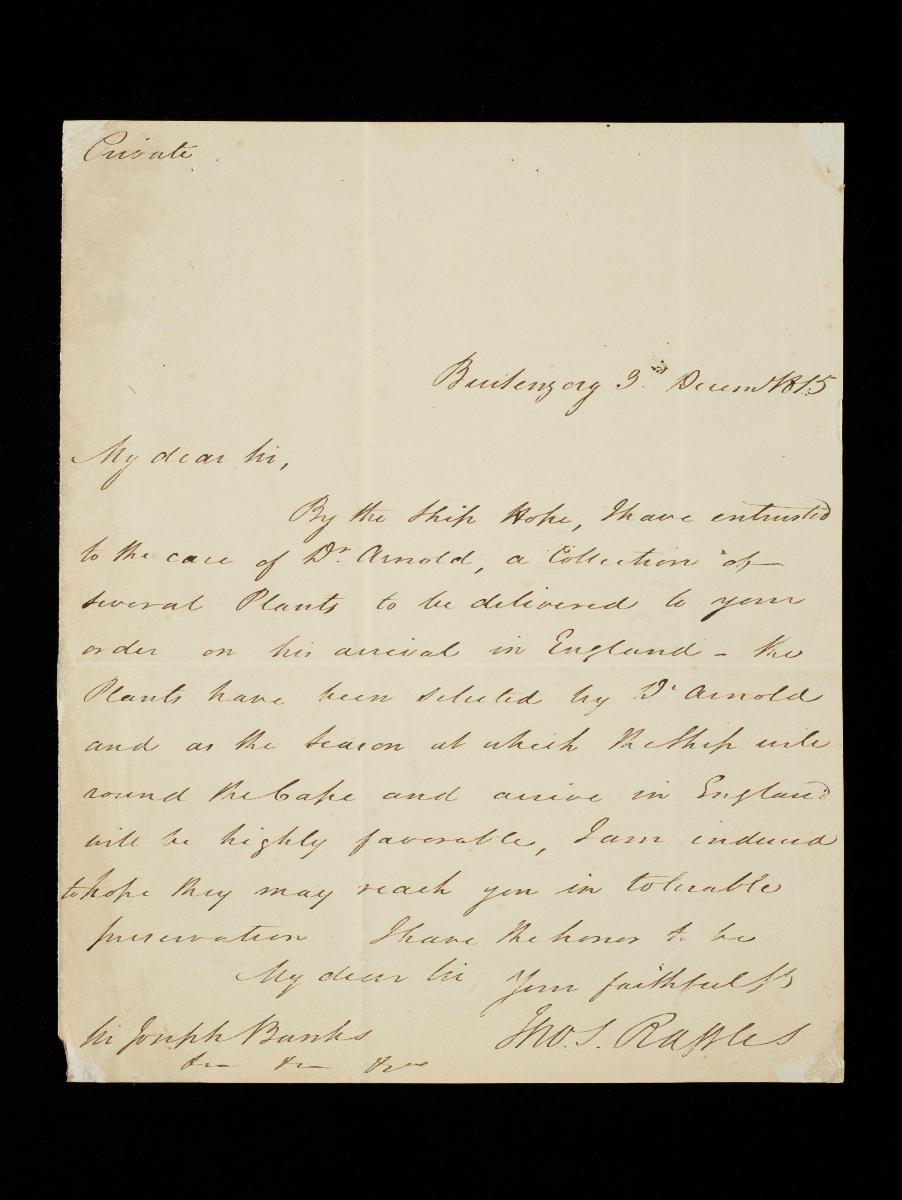 Private
Buitenzorg 3.d Decemr 1815
My dear Sir,
By the Ship Hope, I have entrusted
to the care of Dr. Arnold, a Collection of
several Plants to be delivered to your
order on his arrival in England - the
Plants have been selected by Dr Arnold
and as the Season at which the Ship will
round the Cape and arrive in England
will be highly favorable, I am induced
to hope they may reach you in tolerable
preservation I have the honor to be
My dear Sir, Your faithful St
Sir Joseph Banks Thos. S. Raffles
&c &c &c